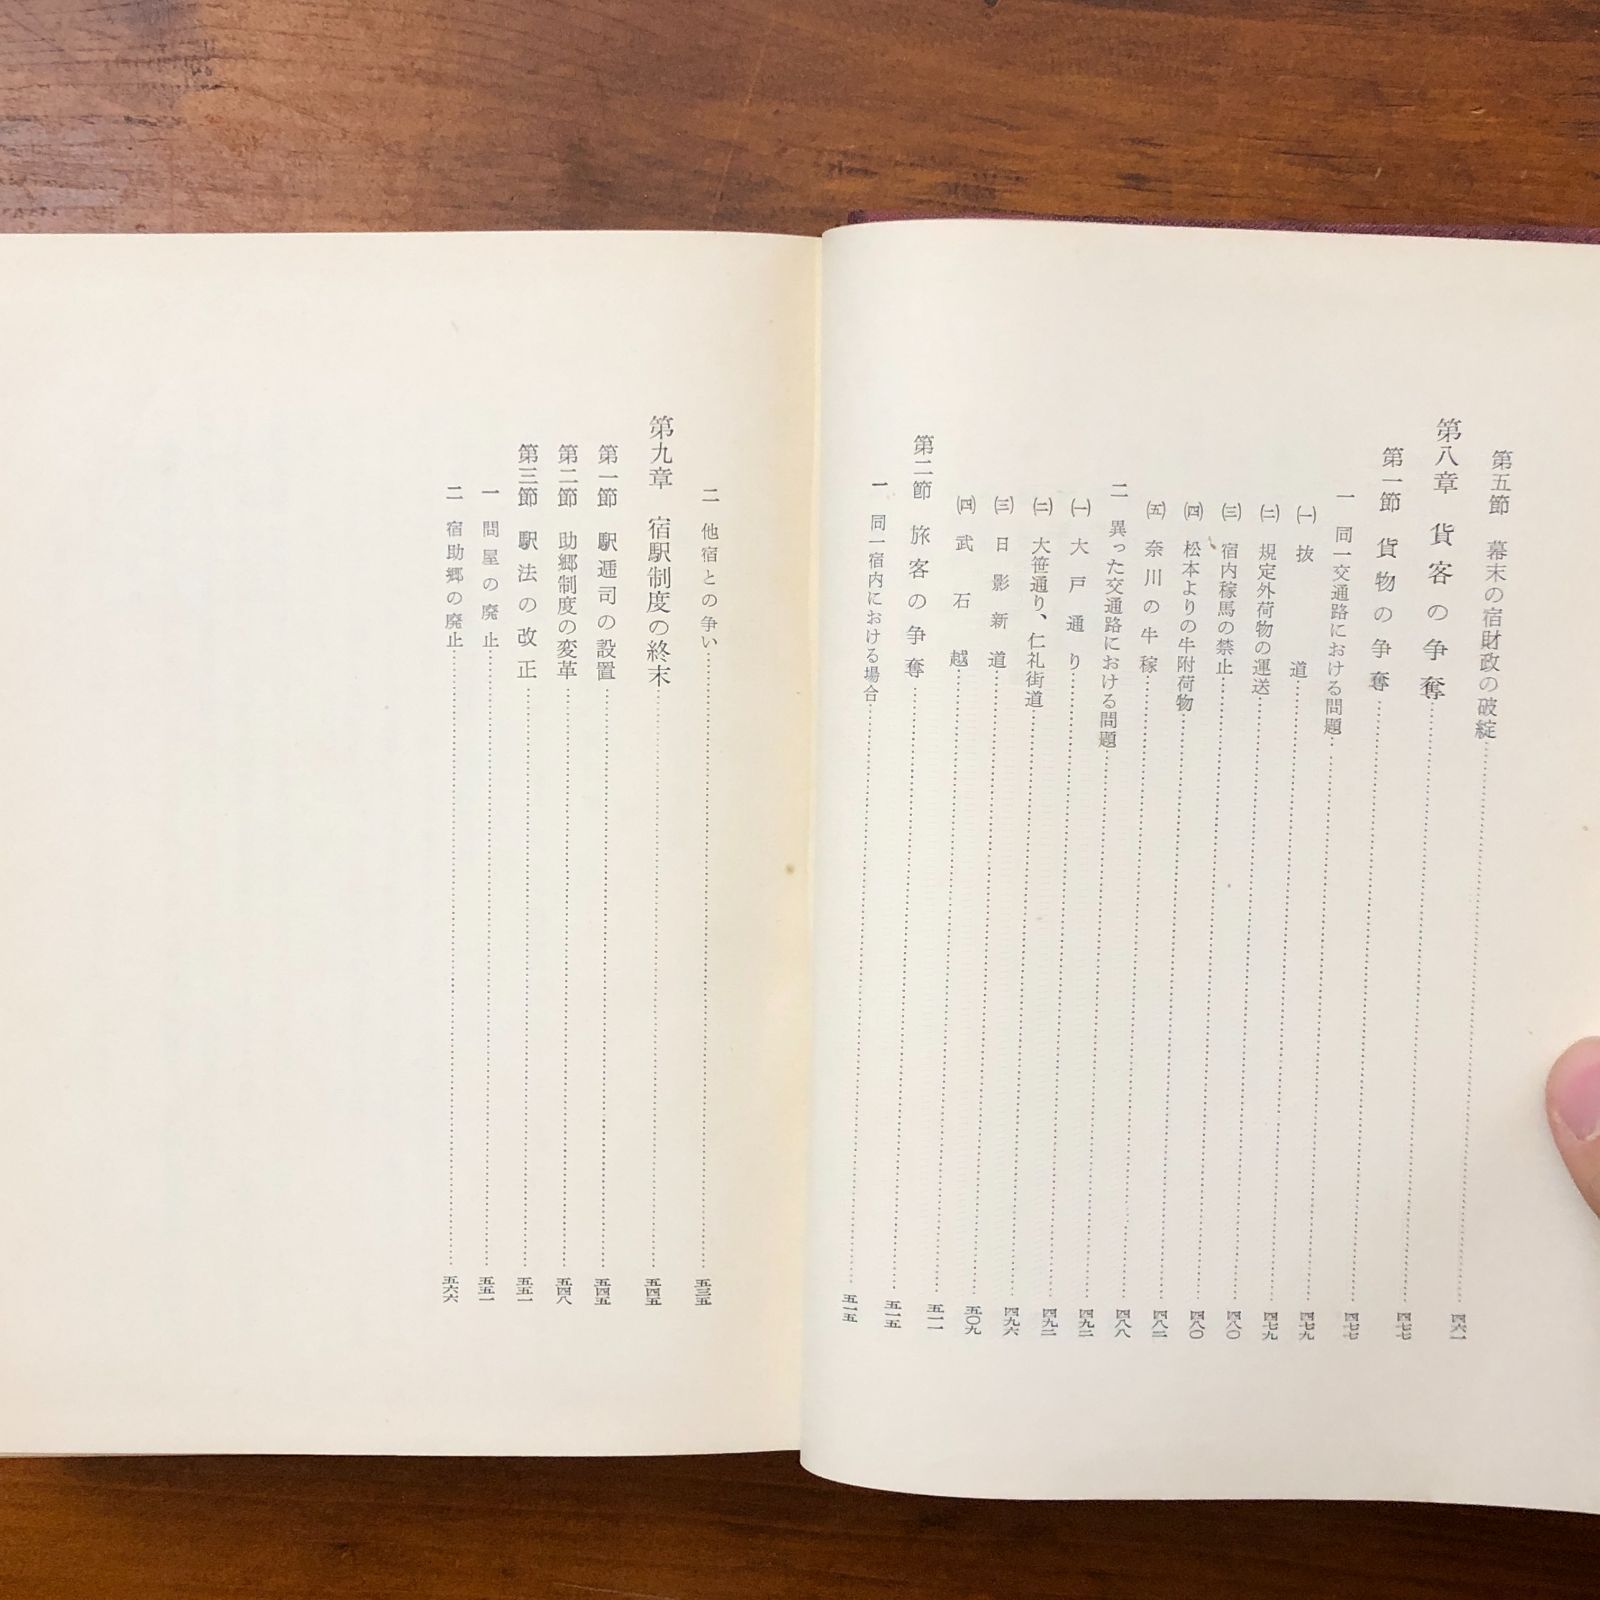 第五節 幕末の宿財政の破綻……四六一
第八章 貨客の争奪……四七七
第一節 貨物の争奪……四七七
一 同一交通路における問題……四七九
㈠ 抜道……四七九
㈡ 規定外荷物の運送……四八〇
㈢ 宿内稼馬の禁止……四八〇
㈣ 松本よりの牛附荷物……四八二
㈤ 奈川の牛稼……四八八
二 異った交通路における問題……四九二
㈠ 大戸通り……四九二
㈡ 大笹通り、仁礼街道……四九六
㈢ 日影新道……五〇九
㈣ 武石越……五一一
第二節 旅客の争奪……五一五
一 同一宿内における場合……五一五
二 他宿との争い……五三五
第九章 宿駅制度の終末……五四五
第一節 駅逓司の設置……五四五
第二節 助郷制度の変革……五四八
第三節 駅法の改正……五五一
一 問屋の廃止……五五一
二 宿助郷の廃止……五六六